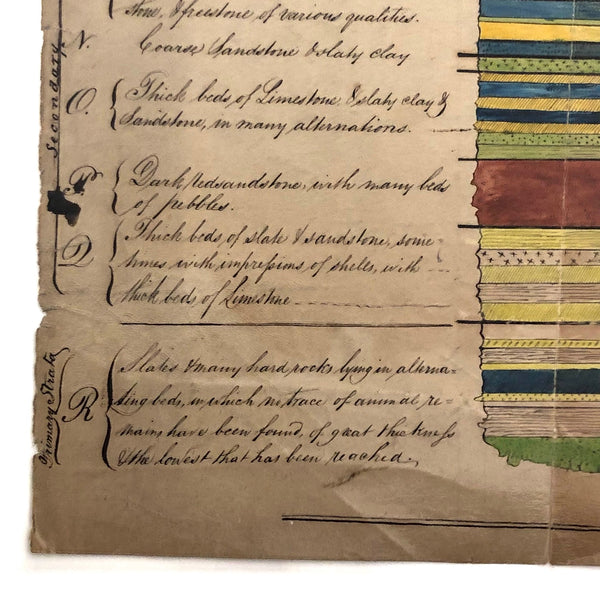 stone, & freestone of various qualities.
N. Coarse Sandstone & slaty clay
Secondary
O. Thick beds of Limestone & slaty clay &
Sandstone, in many alternations.
P. Dark redsandstone, with many beds
of pebbles.
Q Thick beds of slate & sandstone, some-
times with impressions of shells, with
thick beds of Limestone
Primary Strata
R Slates & many hard rocks lying in alterna-
ting beds, in which no trace of animal re-
mains have been found, of great thickness
& the lowest that has been reached.